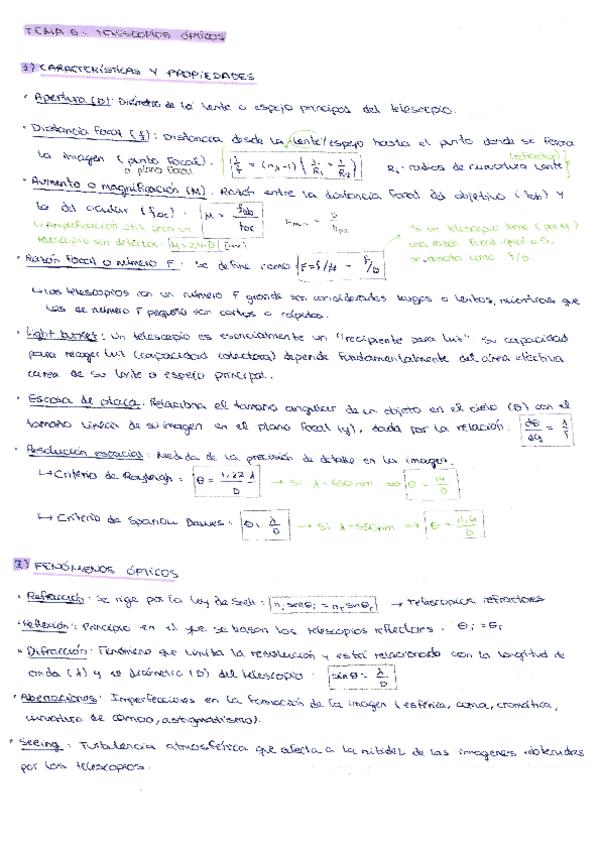 TEMA 6 - TELESCOPIOS ÓPTICOS
1) CARACTERÍSTICAS Y PROPIEDADES
· Apertura (D): Diámetro de la lente o espejo principal del telescopio.
· Distancia focal (f): Distancia desde la lente/espejo hasta el punto donde se forma
la imagen (punto focal). 1/f = (n₂-1) (1/R₁ - 1/R₂) R: radios de curvatura lente
o plano focal
(refractor)
· Aumento o magnificación (M): Razón entre la distancia focal del objetivo (fob) y
la del ocular (foc). M = fob/foc
↳ Amplificación útil para un
telescopio sin defectos: [mm]
Si un telescopio tiene (por ej)
una razón focal igual a 8,
se denota como f/8.
· Razón focal o número F: Se define como F = f/# = f/D
↳ Los telescopios con un número F grande son considerados largos o lentos, mientras que
los de número F pequeño son cortos o rápidos.
· Light bucket: Un telescopio es esencialmente un "recipiente para luz". Su capacidad
para recoger luz (capacidad colectora) depende fundamentalmente del área efectiva
de su lente o espejo principal.
· Escala de placa: Relaciona el tamaño angular de un objeto en el cielo (θ) con el
tamaño lineal de su imagen en el plano focal (y), dada por la relación: dθ/dy = 1/f
· Resolución espacial: Medida de la precisión de detalle en la imagen.
↳ Criterio de Rayleigh: θ = 1,22 λ/D → Si λ = 550 nm ⇒ θ = 14/D
↳ Criterio de Sparrow Dawes: θ = λ/D → Si λ = 550 nm ⇒ θ = 11,6/D
2) FENÓMENOS ÓPTICOS
· Refracción: Se rige por la Ley de Snell: nᵢ senθᵢ = nᵣ senθᵣ → Telescopios refractores
· Reflexión: Principio en el que se basan los telescopios reflectores. θᵢ = θᵣ
· Difracción: Fenómeno que limita la resolución y está relacionado con la longitud de
onda (λ) y el diámetro (D) del telescopio: sin θ = λ/D
· Aberraciones: Imperfecciones en la formación de la imagen (esférica, coma, cromática,
curvatura de campo, astigmatismo).
· Seeing: Turbulencia atmosférica que afecta a la nitidez de las imágenes obtenidas
por los telescopios.